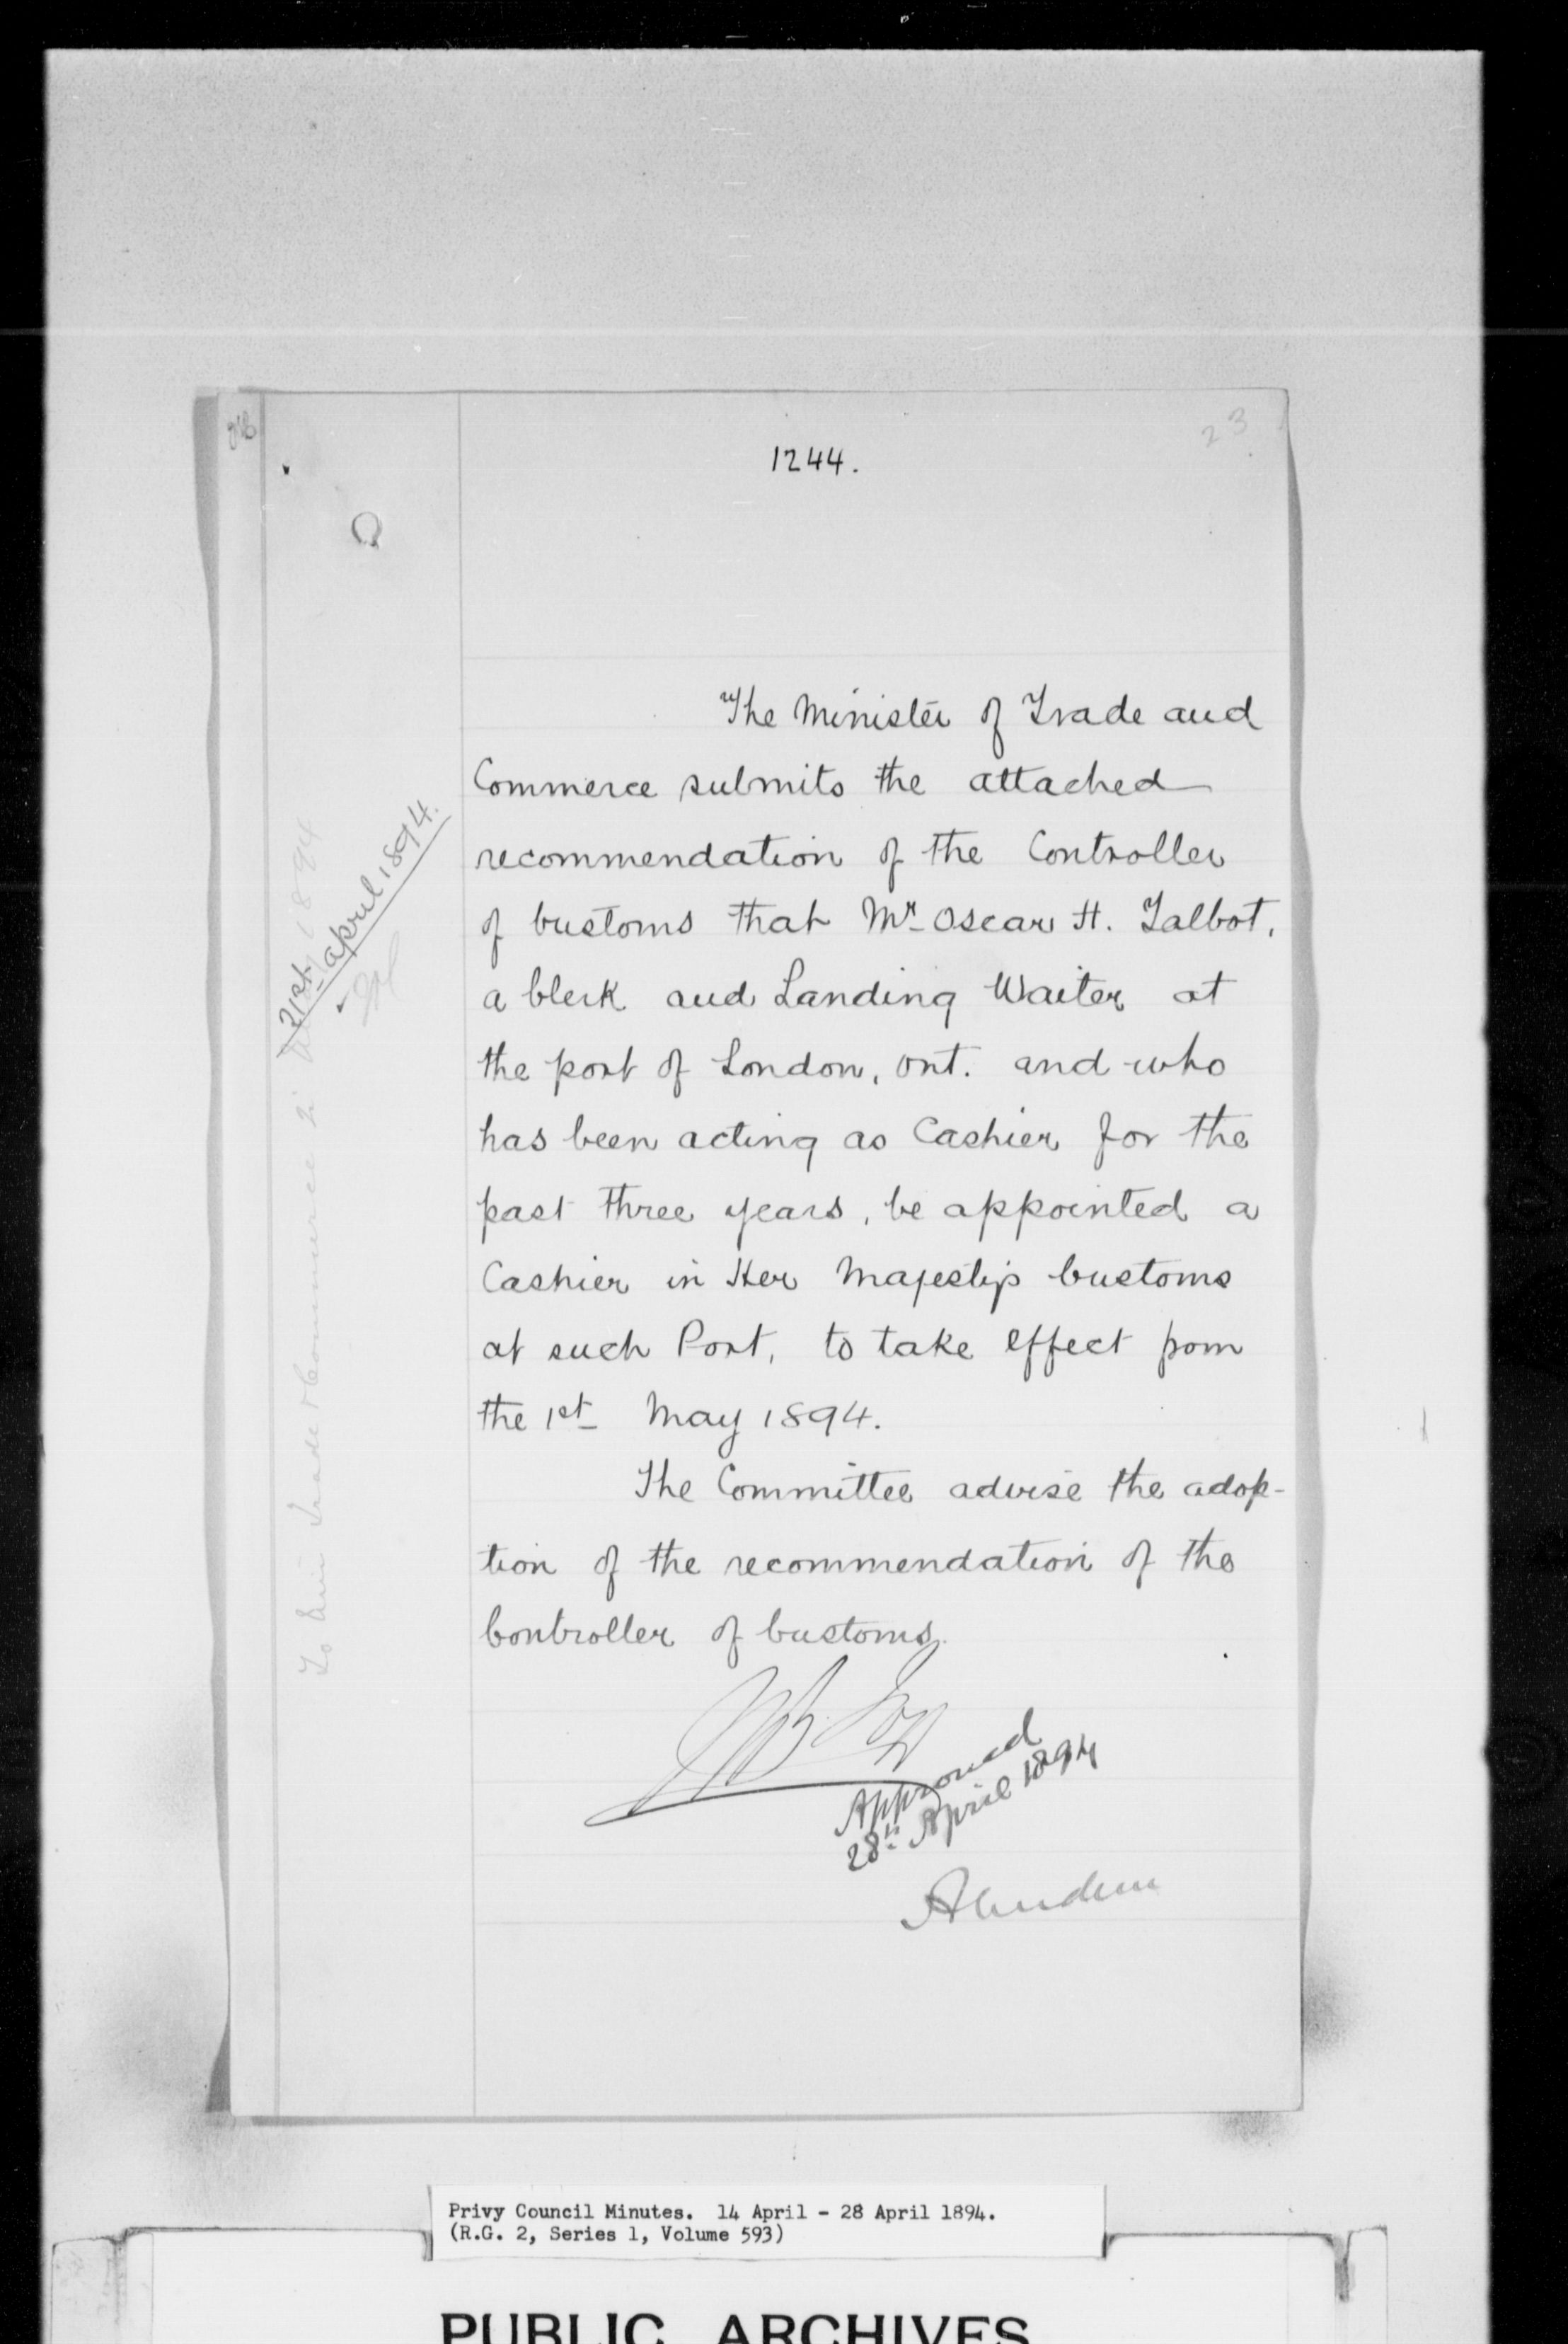 23
1244.
21st April 1894.
The Minister of Trade and
Commerce submits the attached
recommendation of the Controller
of Customs that Mr Oscar H. Talbot,
a Clerk and Landing Waiter at
the port of London, Ont. and who
has been acting as Cashier for the
past three years, be appointed a
Cashier in Her Majesty's Customs
at such Port, to take effect from
the 1st May 1894.
The Committee advise the adop-
tion of the recommendation of the
Controller of Customs.
Approved
28th April 1894
Aberdeen
To Min Trade & Commerce 2 1894
Privy Council Minutes. 14 April - 28 April 1894.
(R.G. 2, Series 1, Volume 593)
PUBLIC ARCHIVES